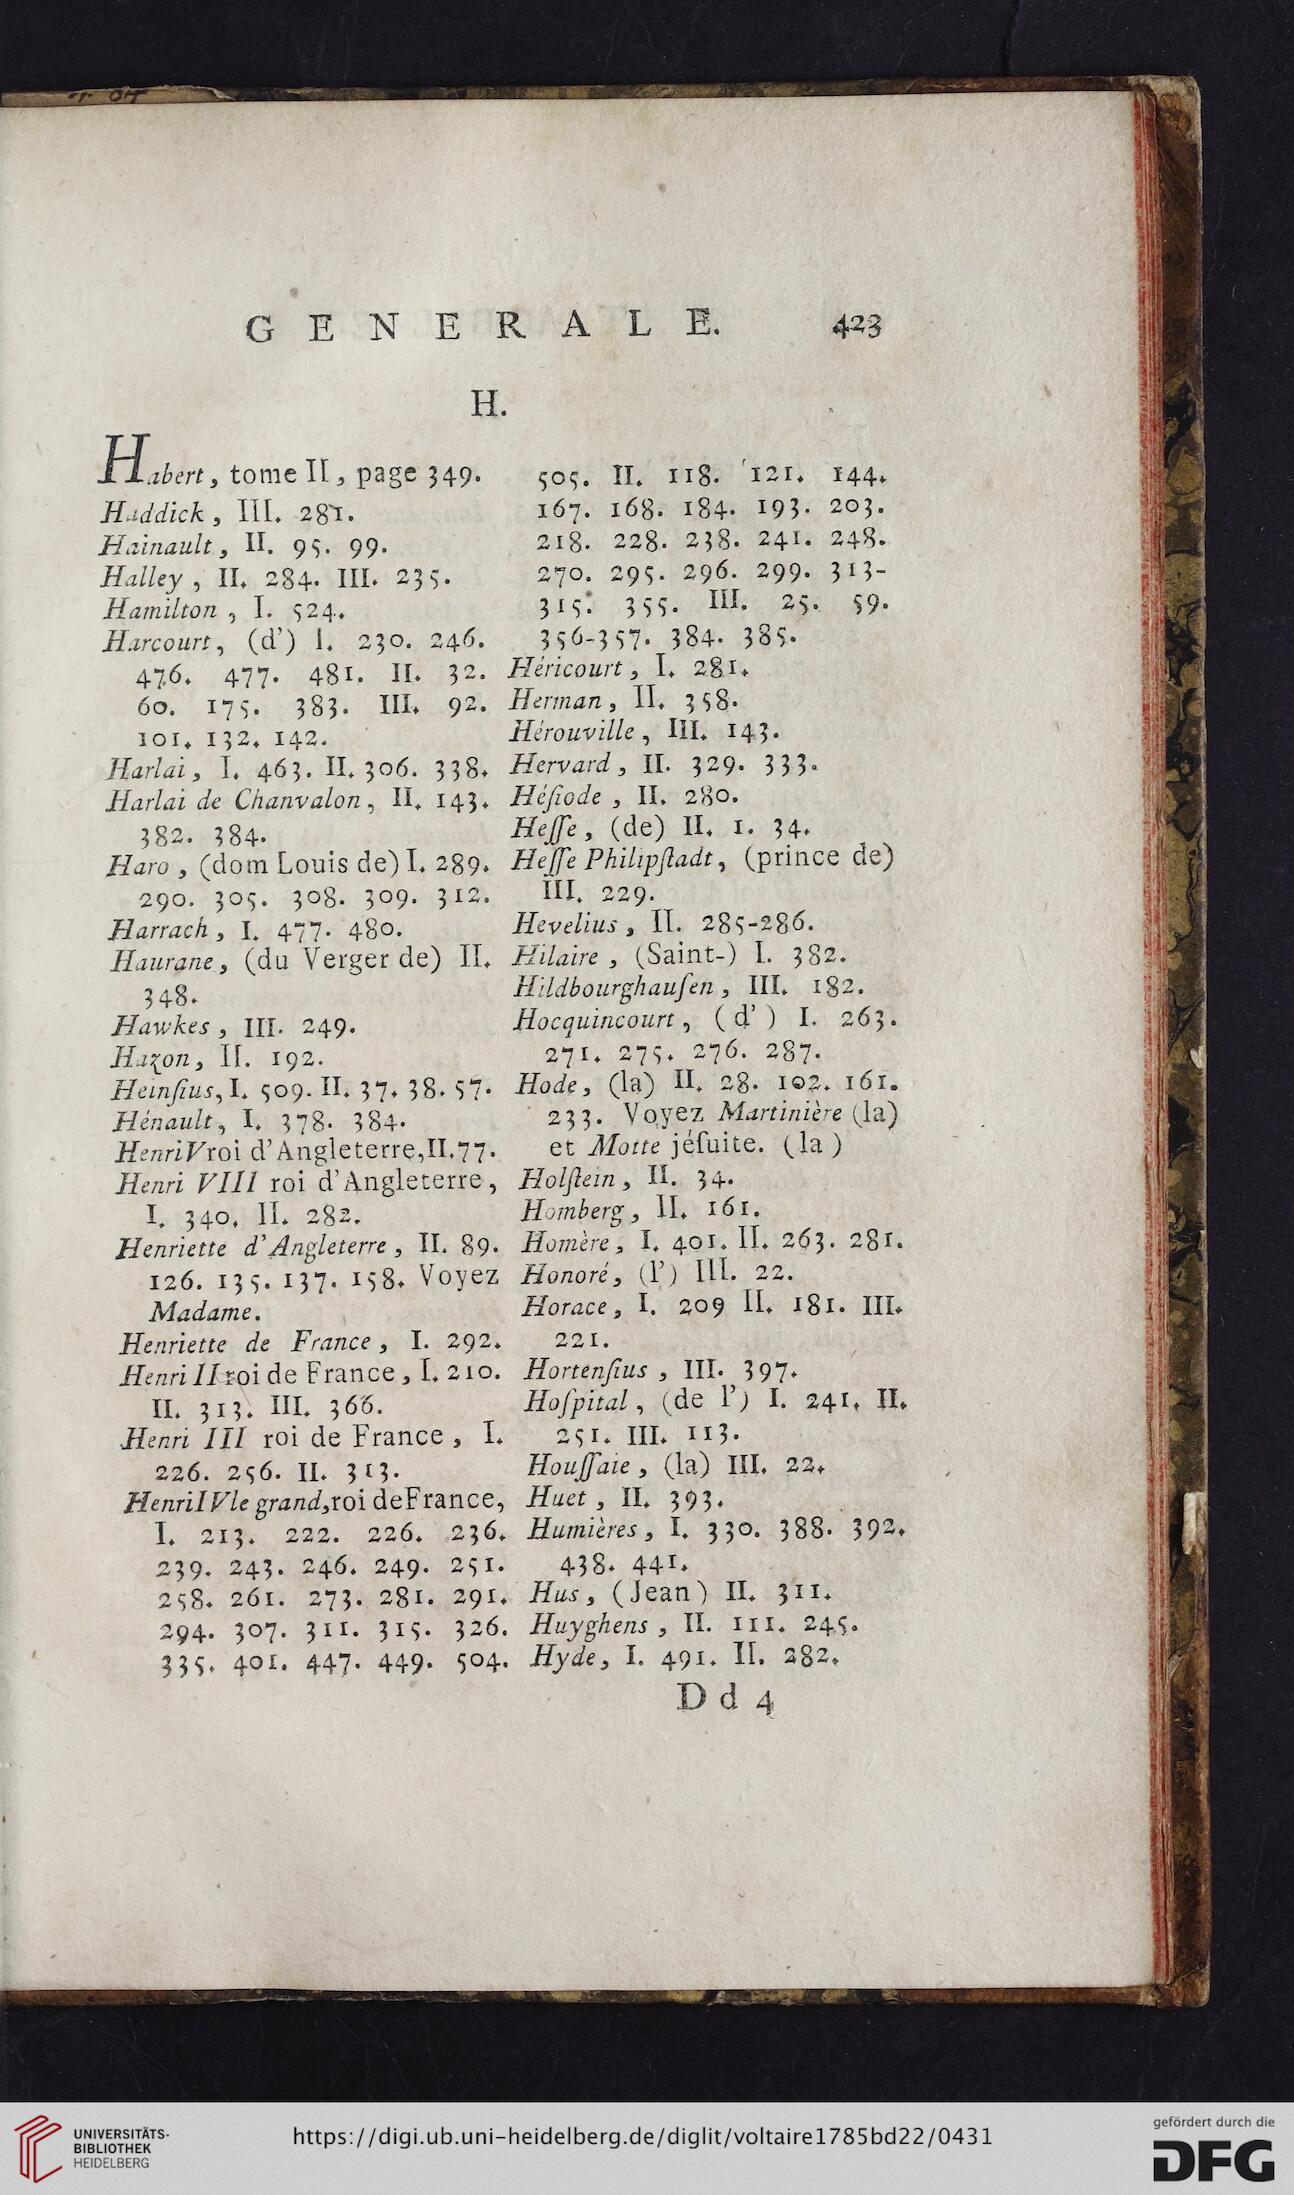 GENERALE. 423
H.
Habert, tome II, page 349.
Haddick, III. 281.
Hainault, II. 95. 99.
Halley, II. 284. III. 235.
Hamilton, I. 524.
Harcourt, (d’) I. 230. 246.
476. 477. 481. II. 32.
60. 175. 383. III. 92.
101. 132. 142.
Harlai, I. 463. II. 306. 338.
Harlai de Chanvalon, II. 143.
382. 384.
Haro, (dom Louis de) I. 289.
290. 305. 308. 309. 312.
Harrach, I. 477. 480.
Haurane, (du Verger de) II.
348.
Hawkes, III. 249.
Hazon, II. 192.
Heinſius, I. 509. II. 37. 38. 57.
Hénault, I. 378. 384.
Henri V roi d’Angleterre, II. 77.
Henri VIII roi d’Angleterre,
I. 340. II. 282.
Henriette d’Angleterre, II. 89.
126. 135. 137. 158. Voyez
Madame.
Henriette de France, I. 292.
Henri II roi de France, I. 210.
II. 313. III. 366.
Henri III roi de France, I.
226. 256. II. 313.
Henri IV le grand, roi de France,
I. 213. 222. 226. 236.
239. 243. 246. 249. 251.
258. 261. 273. 281. 291.
294. 307. 311. 315. 326.
335. 401. 447. 449. 504.
505. II. 118. 121. 144.
167. 168. 184. 193. 203.
218. 228. 238. 241. 248.
270. 295. 296. 299. 313-
315. 355. III. 25. 59.
356-357. 384. 385.
Héricourt, I. 281.
Herman, II. 358.
Hérouville, III. 143.
Hervard, II. 329. 333.
Héſiode, II. 280.
Heſſe, (de) II. 1. 34.
Heſſe Philipſtadt, (prince de)
III. 229.
Hevelius, II. 285-286.
Hilaire, (Saint-) I. 382.
Hildbourghauſen, III. 182.
Hocquincourt, (d’) I. 263.
271. 275. 276. 287.
Hode, (la) II. 28. 102. 161.
233. Voyez Martinière (la)
et Motte jéſuite. (la)
Holſtein, II. 34.
Homberg, II. 161.
Homère, I. 401. II. 263. 281.
Honoré, (l’) III. 22.
Horace, I. 209 II. 181. III.
221.
Hortenſius, III. 397.
Hoſpital, (de l’) I. 241. II.
251. III. 113.
Houſſaie, (la) III. 22.
Huet, II. 393.
Humières, I. 330. 388. 392.
438. 441.
Hus, (Jean) II. 311.
Huyghens, II. 111. 245.
Hyde, I. 491. II. 282.
Dd 4
UNIVERSITÄTS-
BIBLIOTHEK
HEIDELBERG
https://digi.ub.uni-heidelberg.de/diglit/voltaire1785bd22/0431
gefördert durch die
DFG